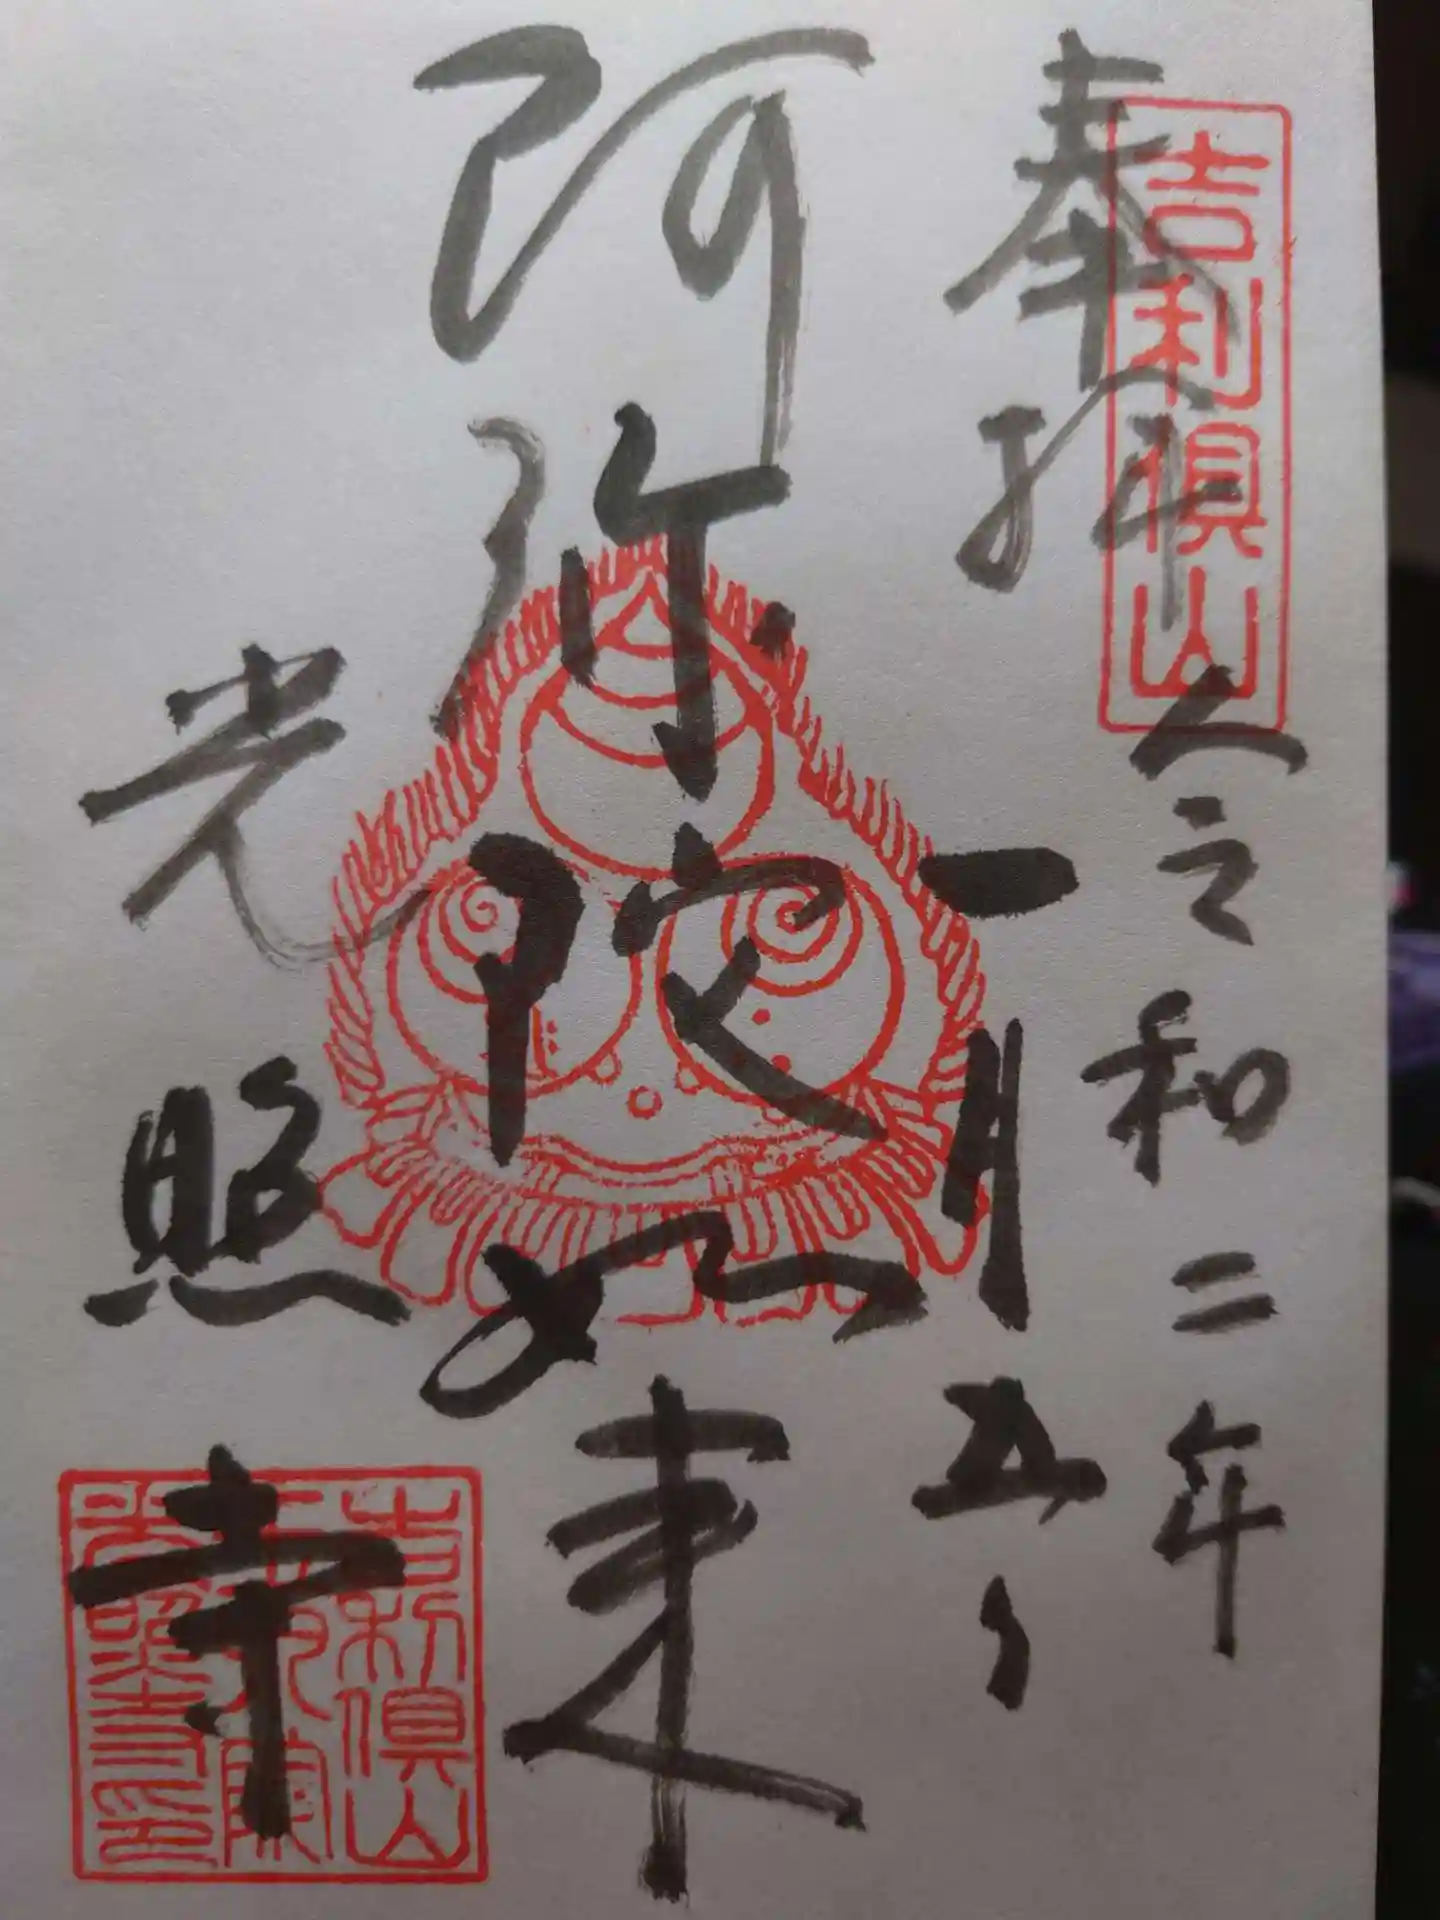 奉拝
吉利倶山
令和二年
一月五日
阿弥陀如来
光照寺
吉利倶山
光照寺印